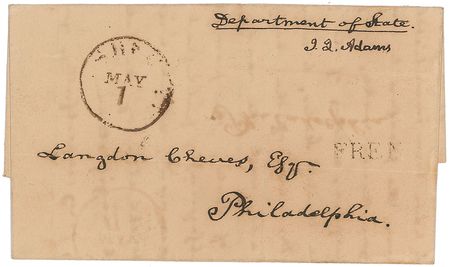 Department of State.
J. Q. Adams
MAY
1
FREE
Langdon Cheves, Esqr.
Philadelphia.